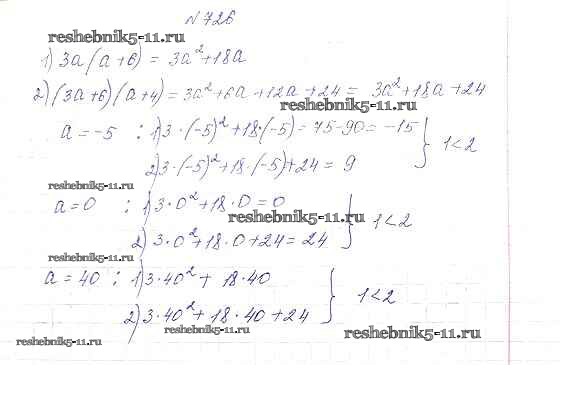 №726
reshebnik5-11.ru
1) 3a(a+6) = 3a²+18a
2) (3a+6)(a+4) = 3a²+6a+12a+24 = 3a²+18a+24
reshebnik5-11.ru
a=-5 : 1) 3·(-5)²+18·(-5) = 75-90 = -15
2) 3·(-5)²+18·(-5)+24 = 9 } 1<2
reshebnik5-11.ru
a=0 : 1) 3·0²+18·0=0
reshebnik5-11.ru
2) 3·0²+18·0+24=24 } 1<2
reshebnik5-11.ru
a=40 : 1) 3·40²+ 18·40
2) 3·40²+18·40+24 } 1<2
reshebnik5-11.ru
reshebnik5-11.ru
reshebnik5-11.ru